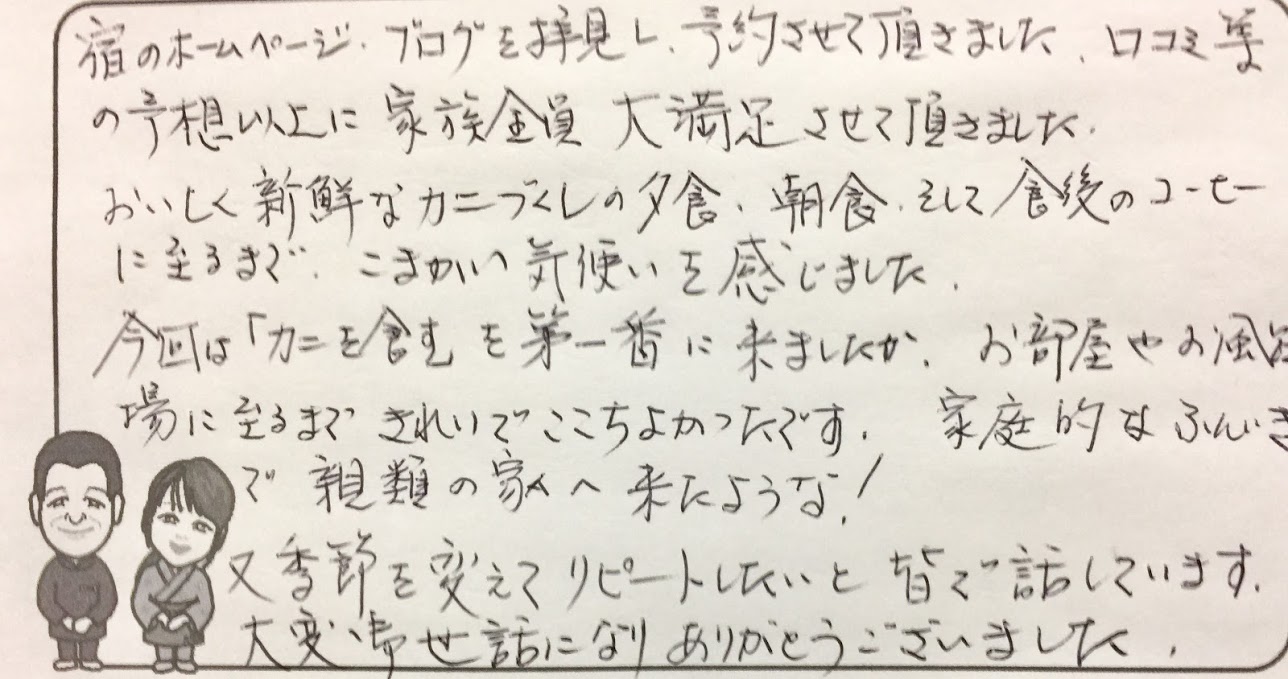 宿のホームページ、ブログを拝見し、予約させて頂きました。口コミ等
の予想以上に家族全員 大満足させて頂きました。
おいしく新鮮なカニづくしの夕食、朝食、そして食後のコーヒー
に至るまで、こまかい気使いを感じました。
今回は「カニを食む」を第一番に来ましたが、お部屋やお風呂
場に至るまできれいでここちよかったです。家庭的なふんいき
で親類の家へ来たような!
又季節を変えてリピートしたいと皆で話しています。
大変お世話になりありがとうございました。